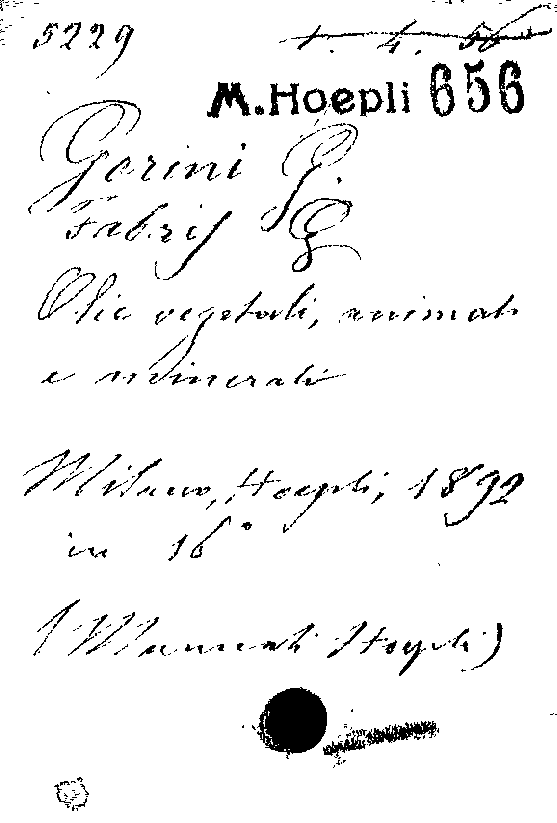 5229 1. 4. 56
M.Hoepli 656
Gorini G.
Fabris G
Olii vegetali, animali
e minerali
Milano, Hoepli, 1892
in 16°
(Manuali Hoepli)